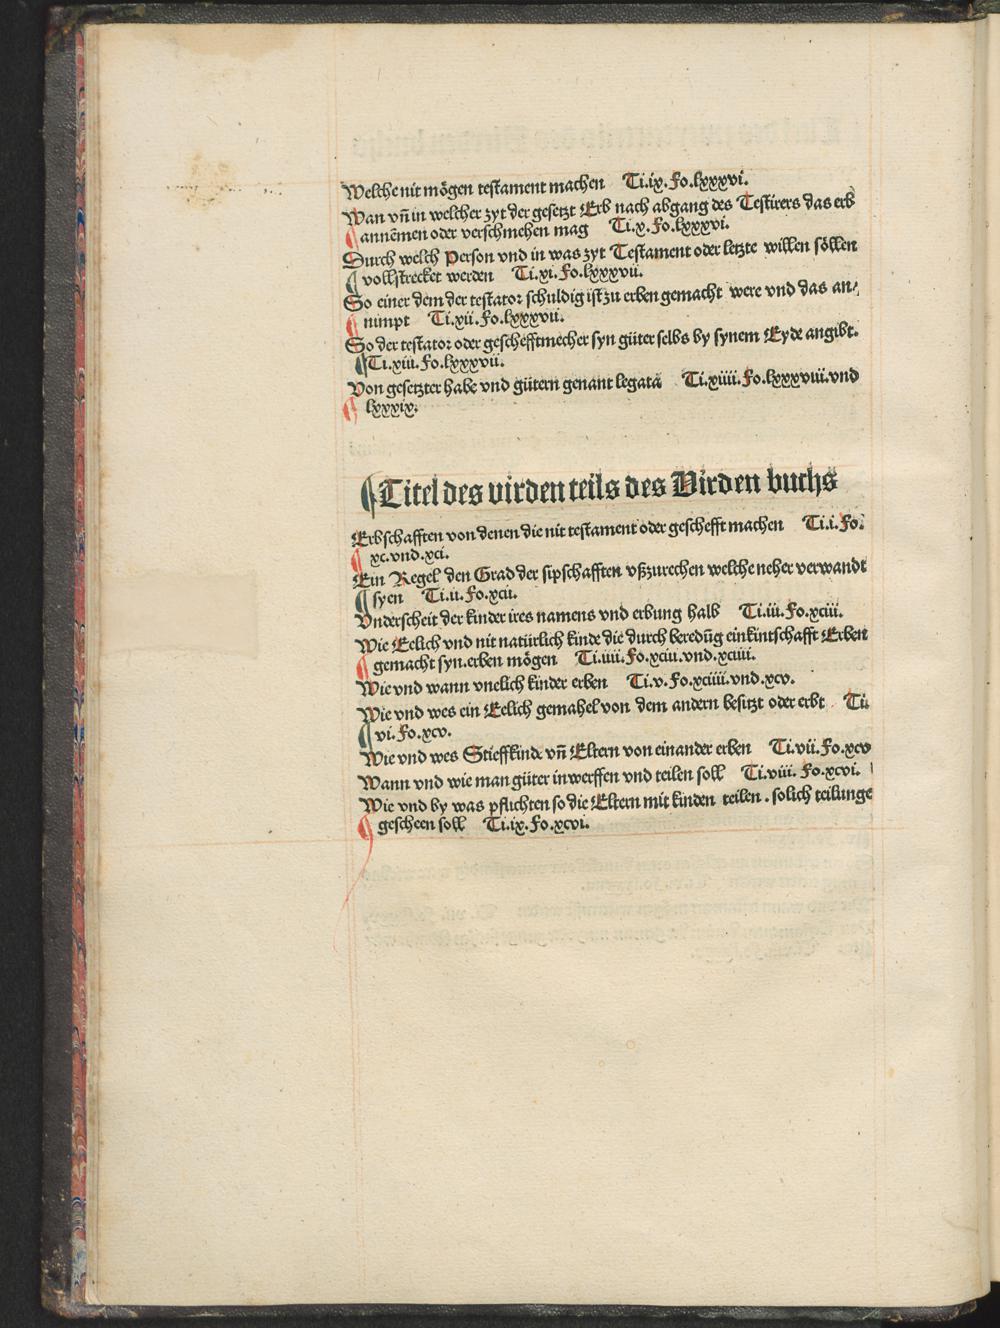 Welche nit mögen testament machen Ti.ix.Fo.lxxxvi.
Wan vñ in welcher zyt der gesetzt Erb nach abgang des Testirers das erb
annēmen oder verschmehen mag Ti.x.Fo.lxxxvi.
Durch welch Person vnd in was zyt Testament oder letzte willen söllen
vollstrecket werden Ti.xi.Fo.lxxxvii.
So einer dem der testator schuldig ist zu erben gemacht were vnd das an/
nimpt Ti.xii.Fo.lxxxvii.
So der testator oder geschefftmecher syn güter selbs by synem Eyde angibt.
Ti.xiii.Fo.lxxxvii.
Von gesetzter habe vnd gütern genant legata Ti.xiiii.Fo.lxxxviii.vnd
lxxxix.
¶Titel des virden teils des Virden buchs
Erbschafften von denen die nit testament oder geschefft machen Ti.i.Fo.
xc.vnd.xci.
Ein Regel den Grad der sipschafften vßzurechen welche neher verwandt
syen Ti.ii.Fo.xcii.
Vnderscheit der kinder ires namens vnd erbung halb Ti.iii.Fo.xciii.
Wie Eelich vnd nit natürlich kinde die durch beredūg ein kintschafft Erben
gemacht syn.erben mögen Ti.iiii.Fo.xciii.vnd.xciiii.
Wie vnd wann vnelich kinder erben Ti.v.Fo.xciiii.vnd.xcv.
Wie vnd wes ein Eelich gemahel von dem andern besitzt oder erbt Ti.
vi.Fo.xcv.
Wie vnd wes Stieffkinde vñ Eltern von einander erben Ti.vii.Fo.xcv
Wann vnd wie man güter inwerffen vnd teilen soll Ti.viii. Fo.xcvi.
Wie vnd by was pflichten so die Eltern mit kinden teilen . solich teilunge
gescheen soll Ti.ix.Fo.xcvi.